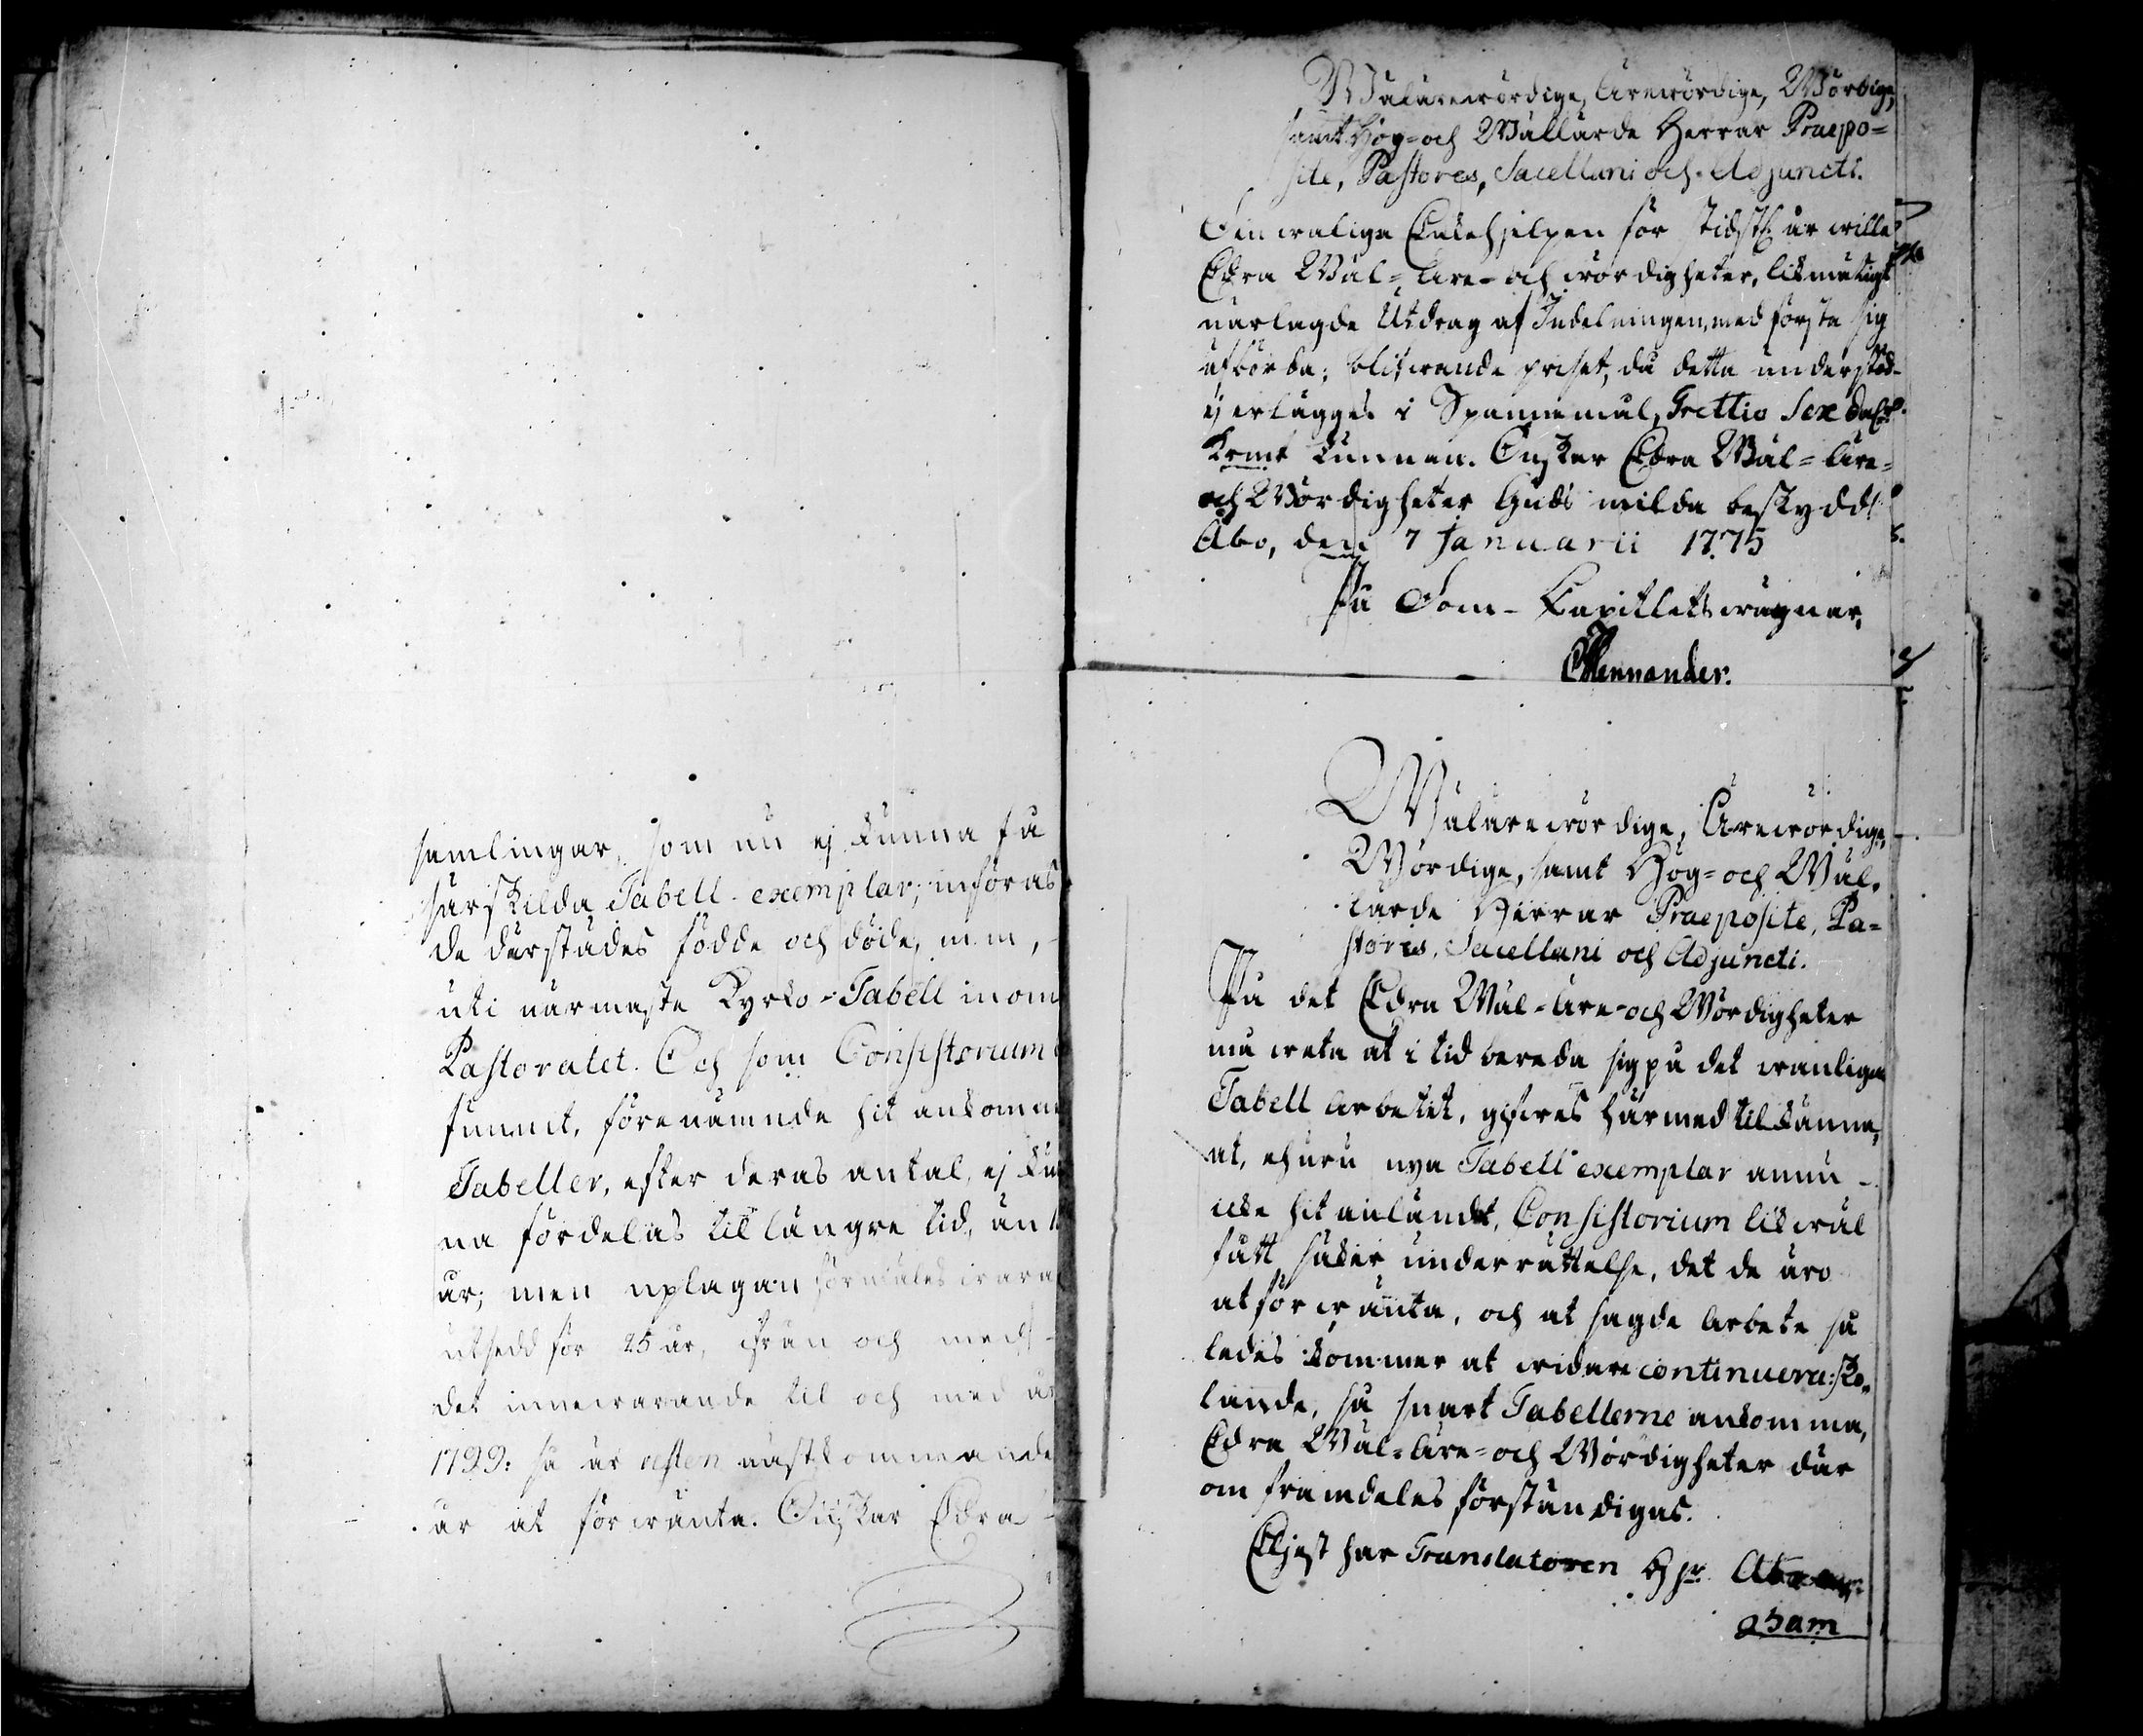 samlingar, som nu ej kunna få
särskilda Tabell-exemplar, införas
de därstädes födde och döde, m.m.,
uti närmaste Kyrko-Tabell inom
Pastoratet. Och som Consistorium
funnit, förenämnde hit ankomne
Tabeller, efter deras antal, ej kun
na fördelas till längre tid, än
år; men uplagan förmales wara
utsedd för 25 år, ifrån och med
det innewarande til och med år
1799: så är resten nästkommande
år at förwänta. Önskar Edra
Wälärewördige, Ärewördige, Wördige,
samt Hög- och Wällärde Herrar Praepo=
site, Pastores, Sacellani och Adjuncti.
Den wanliga Enkehjelpen för tidstk. år wille
Edra Wäl- Äre- och wördigheter, likmätigt
närlagde Utdrag af Indelningen, med första sig
utbörda; blifwande priset, då detta understöd
ej erlägges i Spannemål, Trettio Sex Dalr
Kopmt tunnan. Önskar Edra Wäl- Äre-
och Wördigheter Guds milda beskydd!
Åbo, den 7 Januarii 1775
På Dom-Capitlets wägnar,
CFMennander.
Wälärewördige, Ärewördige,
Wördige, samt Hög- och Wäl-
lärde Herrar Praeposite, Pa-
stores, Sacellani och Adjuncti.
På det Edra Wäl-Äre-och Wördigheter
må weta at i tid bereda sig på det wanliga
Tabell Arbetet, gifwes härmed tilkänna,
at, ehuru nya Tabell exemplar ännu
icke hit anländt, Consistorium likwäl
fått säker underrättelse, det de äro
at förwänta, och at sagde Arbete så
ledes kommer at widare continuera: Sko-
lande, så snart Tabellerne ankomma,
Edra Wäl-Äre-och Wördigheter där
om framdeles förständigas.
Eljest har Translatoren Hr Abra
ham